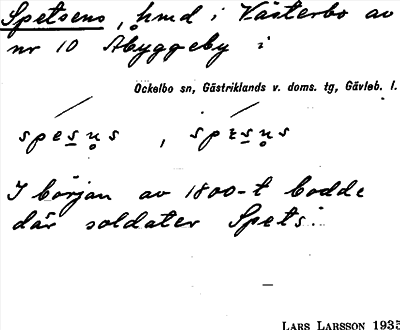 Spetsens, hmd i Västerbo av
nr 10 Åbyggeby i
Ockelbo sn, Gästriklands v. doms. tg, Gävleb. l.
I början av 1800-t bodde
där soldaten Spets.
LARS LARSSON 1935